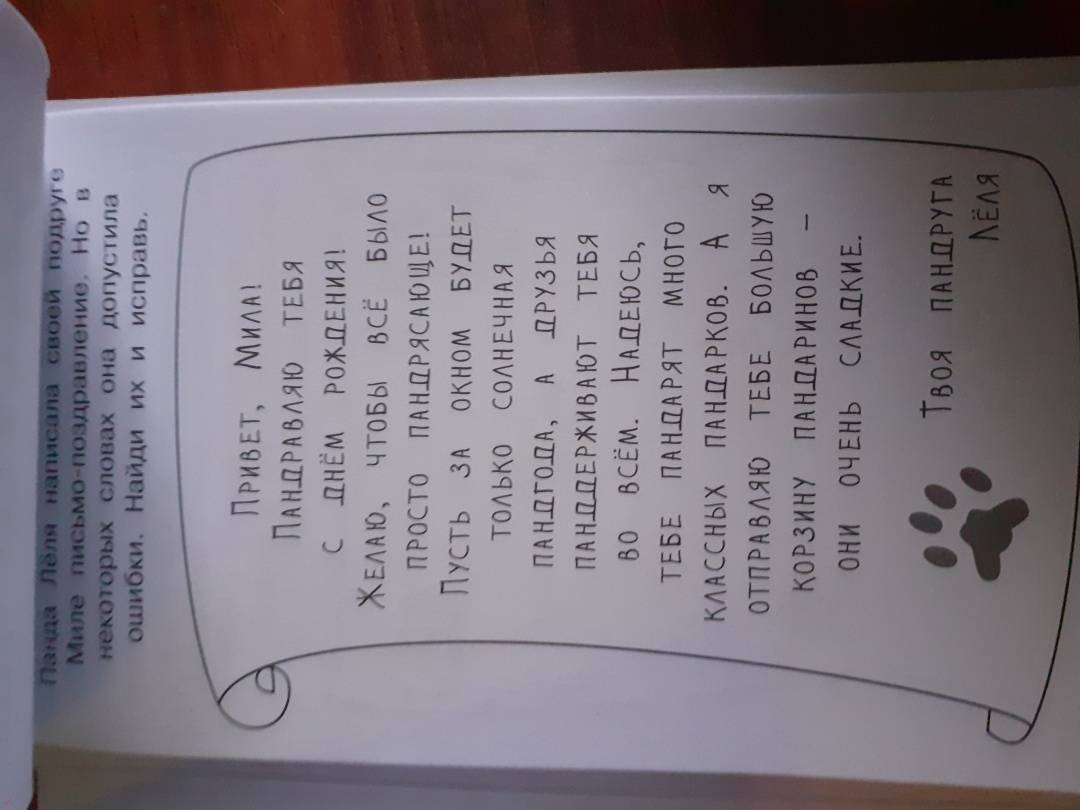 Панда Лёля написала своей подруге
Миле письмо-поздравление. Но в
некоторых словах она допустила
ошибки. Найди их и исправь.
Привет, Мила!
Пандравляю тебя
с днём рождения!
Желаю, чтобы всё было
просто пандрясающе!
Пусть за окном будет
только солнечная
пандгода, а друзья
панддерживают тебя
во всём. Надеюсь,
тебе пандарят много
классных пандарков. А я
отправляю тебе большую
корзину пандаринов –
они очень сладкие.
Твоя пандруга
Лёля